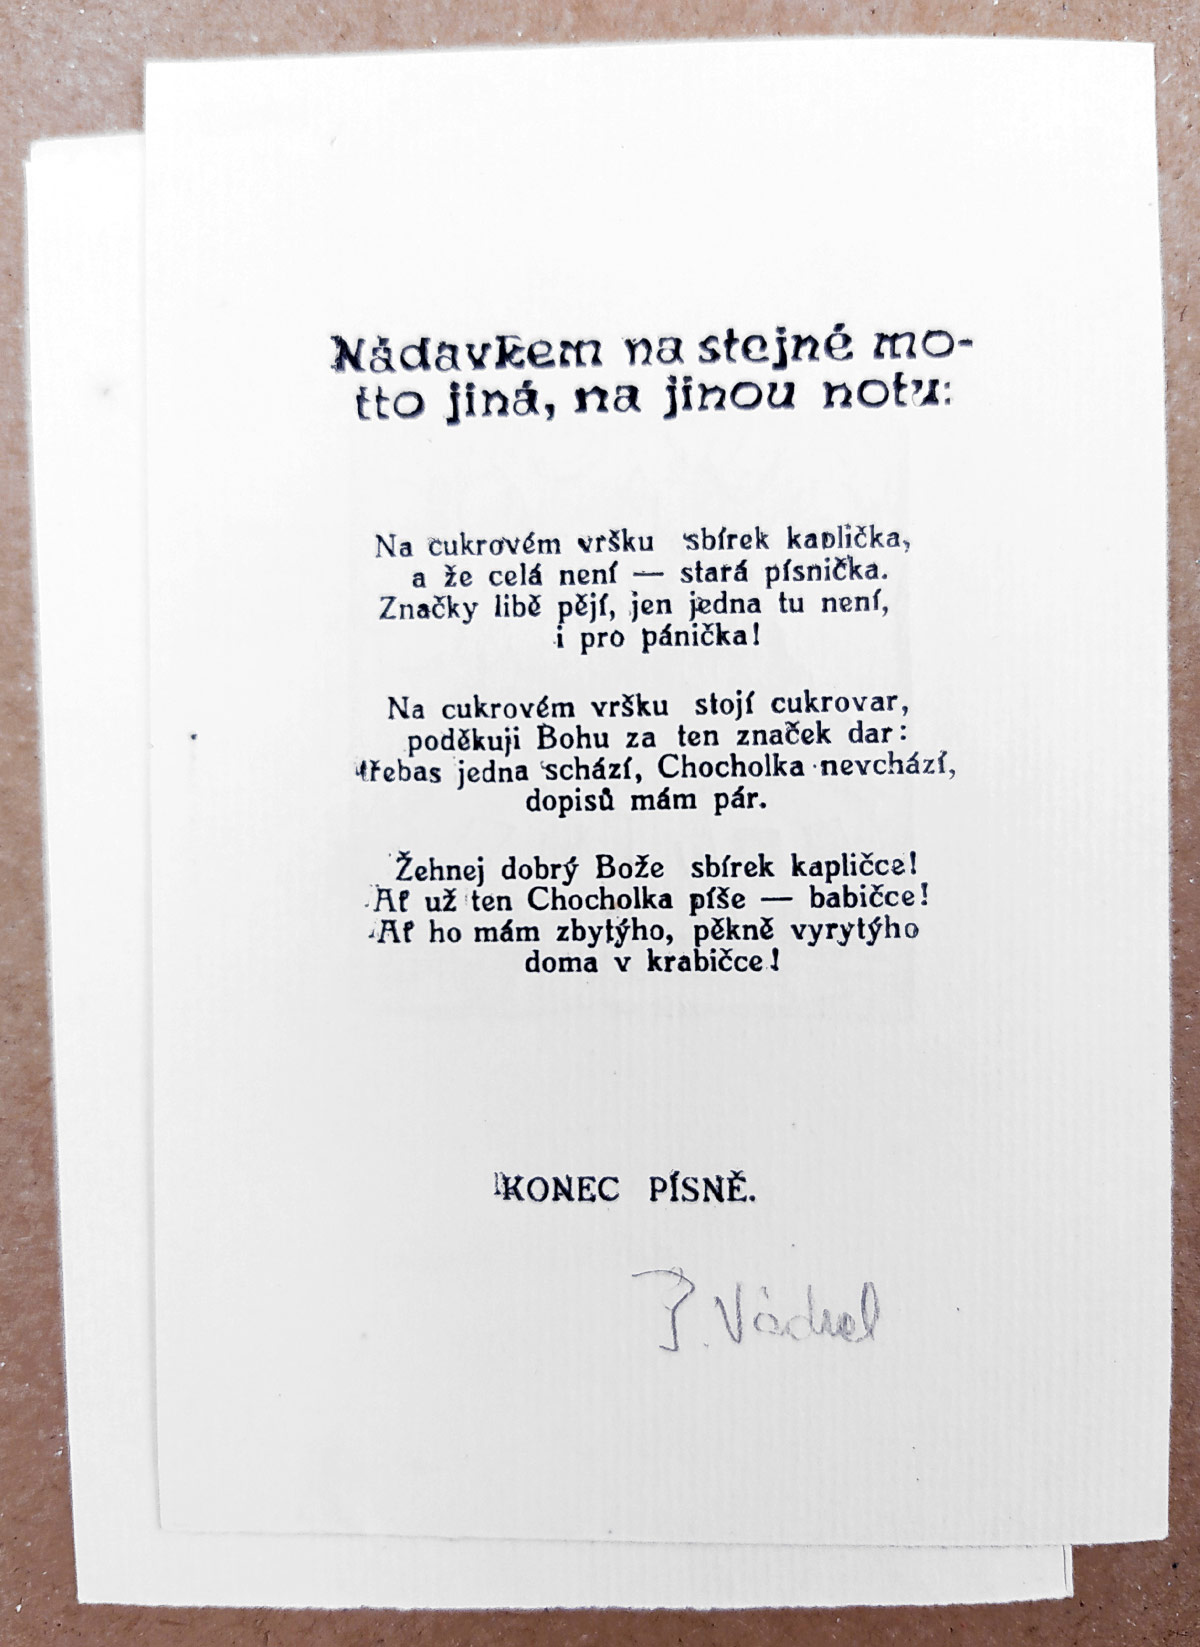 Nádavkem na stejné mo-
tto jiná, na jinou notu:
Na cukrovém vršku sbírek kaplička,
a že celá není — stará písnička.
Značky libě pějí, jen jedna tu není,
i pro pánička!
Na cukrovém vršku stojí cukrovar,
poděkuji Bohu za ten značek dar:
třebas jedna schází, Chocholka nevchází,
dopisů mám pár.
Žehnej dobrý Bože sbírek kapličce!
Ať už ten Chocholka píše — babičce!
Ať ho mám zbytýho, pěkně vyrytýho
doma v krabičce!
KONEC PÍSNĚ.
J. Váchal